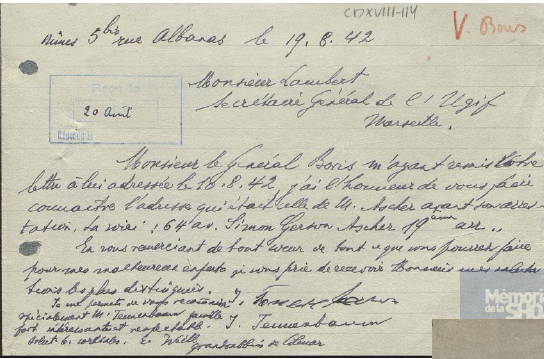 CDXVIII-114
V. Boris
Nîmes 5bis rue Albanas le 19.8.42
Monsieur Lambert
Secrétaire Général de l'Ugif
Marseille.
Reçu le
20 Août
Répondu le
Monsieur le Général Boris m'ayant remis votre
lettre à lui adressée le 18.8.42, j'ai l'honneur de vous faire
connaître l'adresse qui était celle de M. Ascher avant son arres-
tation. La voici : 64 av. Simon Gerson Ascher 19ème arr..
En vous remerciant de tout cœur de tout ce que vous pourrez faire
pour mes malheureux enfants je vous prie de recevoir Monsieur mes saluta-
tions les plus distinguées.
Je me permets de vous recommander
spécialement M. Tennenbaum famille
fort intéressante et respectable. J. Tennenbaum
E. Weill
Grand rabbin de Colmar
Mémorial
de la SHOAH